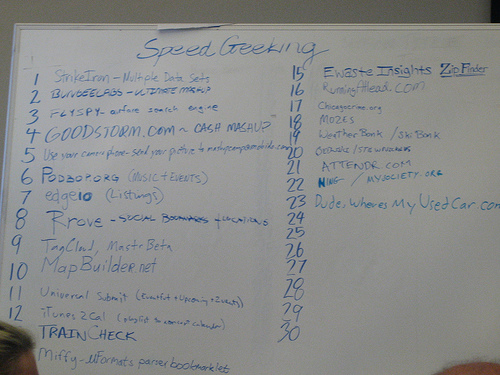 Speed Geeking
1 StrikeIron - Multiple Data Sets
2 BUNGEELABS - ULTIMATE MASHUP
3 FLYSPY - airfare search engine
4 GOODSTORM.COM ~ CASH MASHUP
5 Use your camera phone - send your picture to
6 Podbop.org (MUSIC + EVENTS)
7 edgeio (Listings)
8 Rrove - SOCIAL BOOKMARKS + LOCATIONS
9 TagCloud, MasterBeta
10 MapBuilder.net
11 Universal Submit (Eventful + Upcoming + Zvents)
12 iTunes2Cal (playlist to concert calendar)
TRAINCHECK
Miffy - uFormats parser bookmarklet
15 Ewaste Insights ZipFinder
16 RunningAHead.COM
17 Chicagocrime.org
18 MOZES
19 WeatherBonk / SkiBonk
20
21 ATTENDR.COM
22 NING / MYSOCIETY.ORG
23 Dude, Wheres My UsedCar.com
24
25
26
27
28
29
30